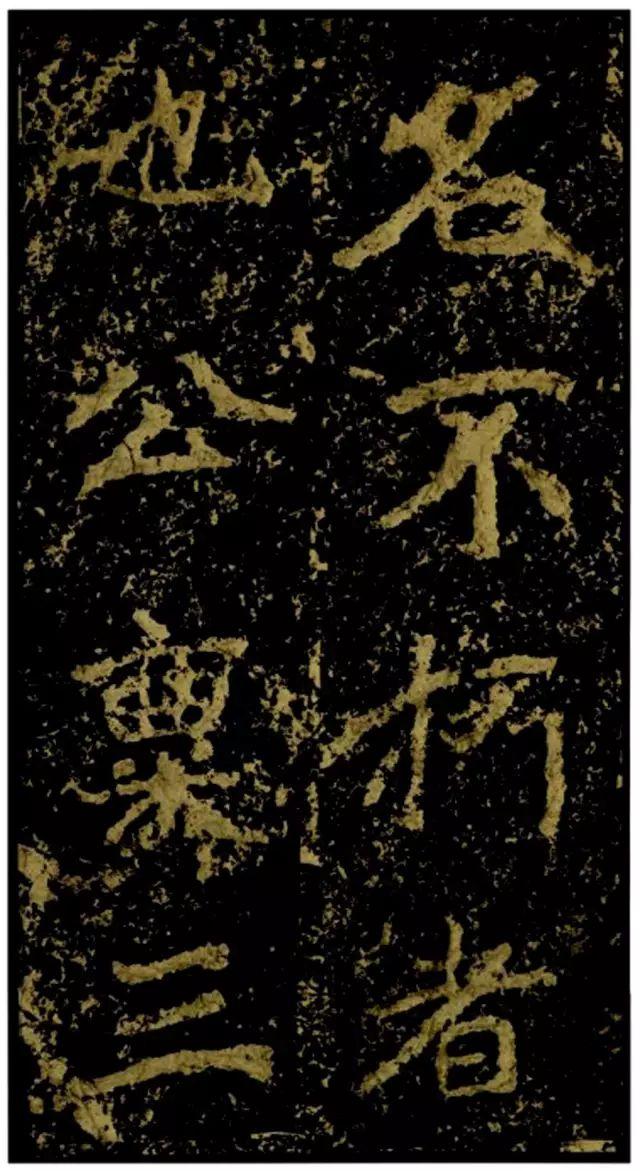 名不朽者
也公稟三